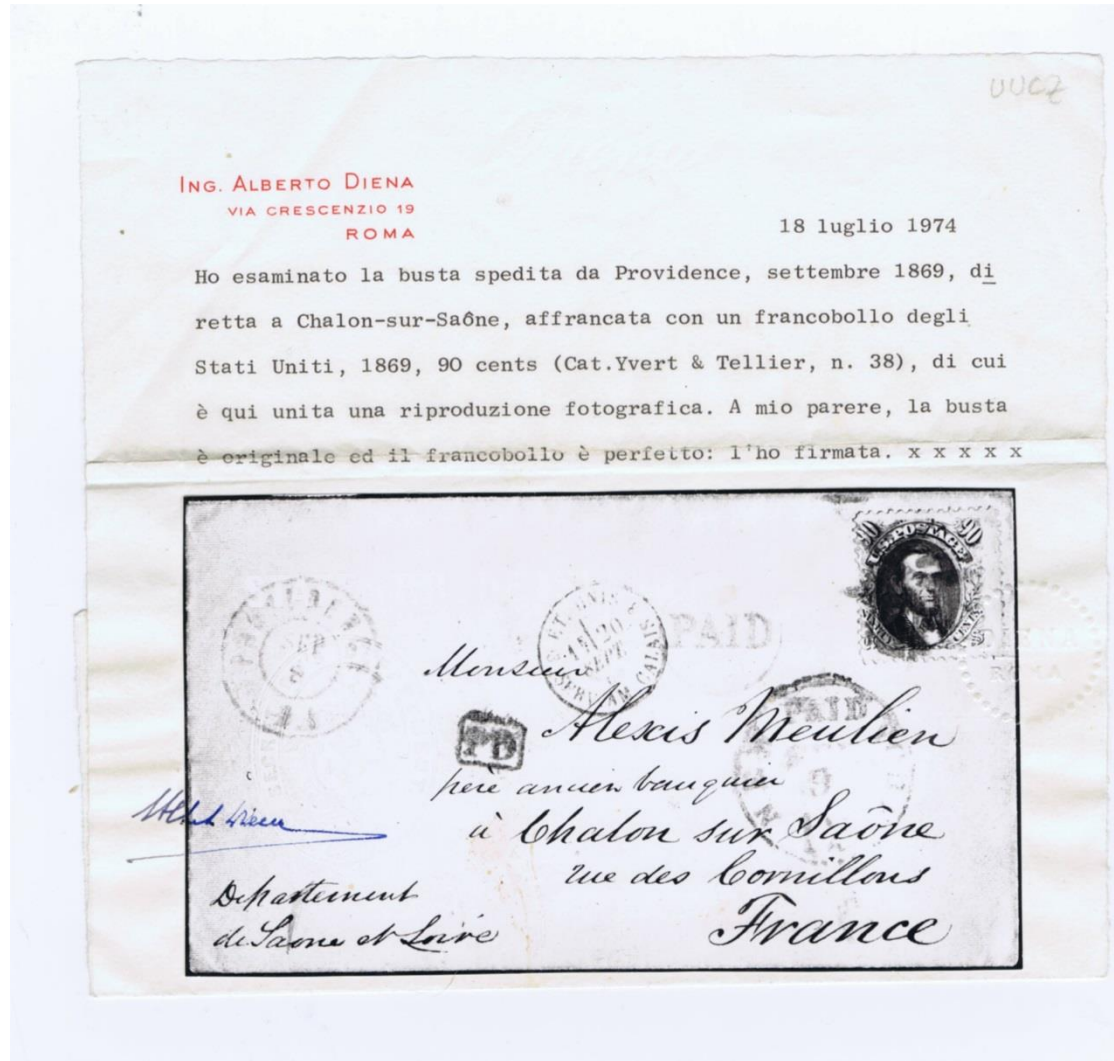 UUCZ
ING. ALBERTO DIENA
VIA CRESCENZIO 19
ROMA
18 luglio 1974
Ho esaminato la busta spedita da Providence, settembre 1869, di
retta a Chalon-sur-Saône, affrancata con un francobollo degli
Stati Uniti, 1869, 90 cents (Cat.Yvert & Tellier, n. 38), di cui
è qui unita una riproduzione fotografica. A mio parere, la busta
è originale ed il francobollo è perfetto: l'ho firmata. x x x x x
90 90
U.S. POSTAGE
SEP
8
20
SEPT
CALAIS
PAID
ROMA
Monsieur
PD
Alexis Meulien
PAID
père ancien banquier
à Chalon sur Saône
rue des Cornillons
Departement
de Saone et Loire
France